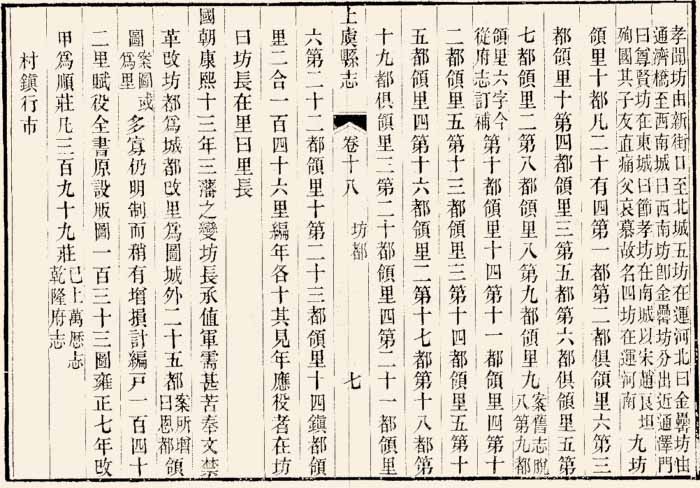 孝聞坊由新街口至北城五坊在運河北曰金罍坊由
通濟橋至西南城曰西南坊卽金罍坊分出近通澤門
曰尊賢坊在東城曰節孝坊在南城以宋趙良坦
殉國其子友直痛父哀慕故名四坊在運河南
九坊
領里十都凡二十有四第一都第二都俱領里六第三
都領里十第四都領里三第五都第六都俱領里五第
七都領里二第八都領里八第九都領里九
案舊志脫
八第九都
領里六字今
從府志訂補
第十都領里十四第十一都領里四第十
二都領里五第十三都領里三第十四都領里五第十
五都領里四第十六都領里二第十七都第十八都第
十九都俱領里三第二十都領里四第二十一都領里
上虞縣志 卷十八 坊都 七
六第二十二都領里十第二十三都領里十四鎮都領
里二合一百四十六里編年各十其見年應役者在坊
曰坊長在里曰里長
國朝康熙十三年三藩之變坊長承値軍需甚苦奉文禁
革改坊都爲城都改里爲圖城外二十五都
案所增
曰恩都
領
圖
案圖或
爲里
多寡仍明制而稍有增損計編戸一百四十
二里賦役全書原設版圖一百三十三圖雍正七年改
甲爲順莊凡三百九十九莊
已上萬厯志
乾隆府志
村鎮行市